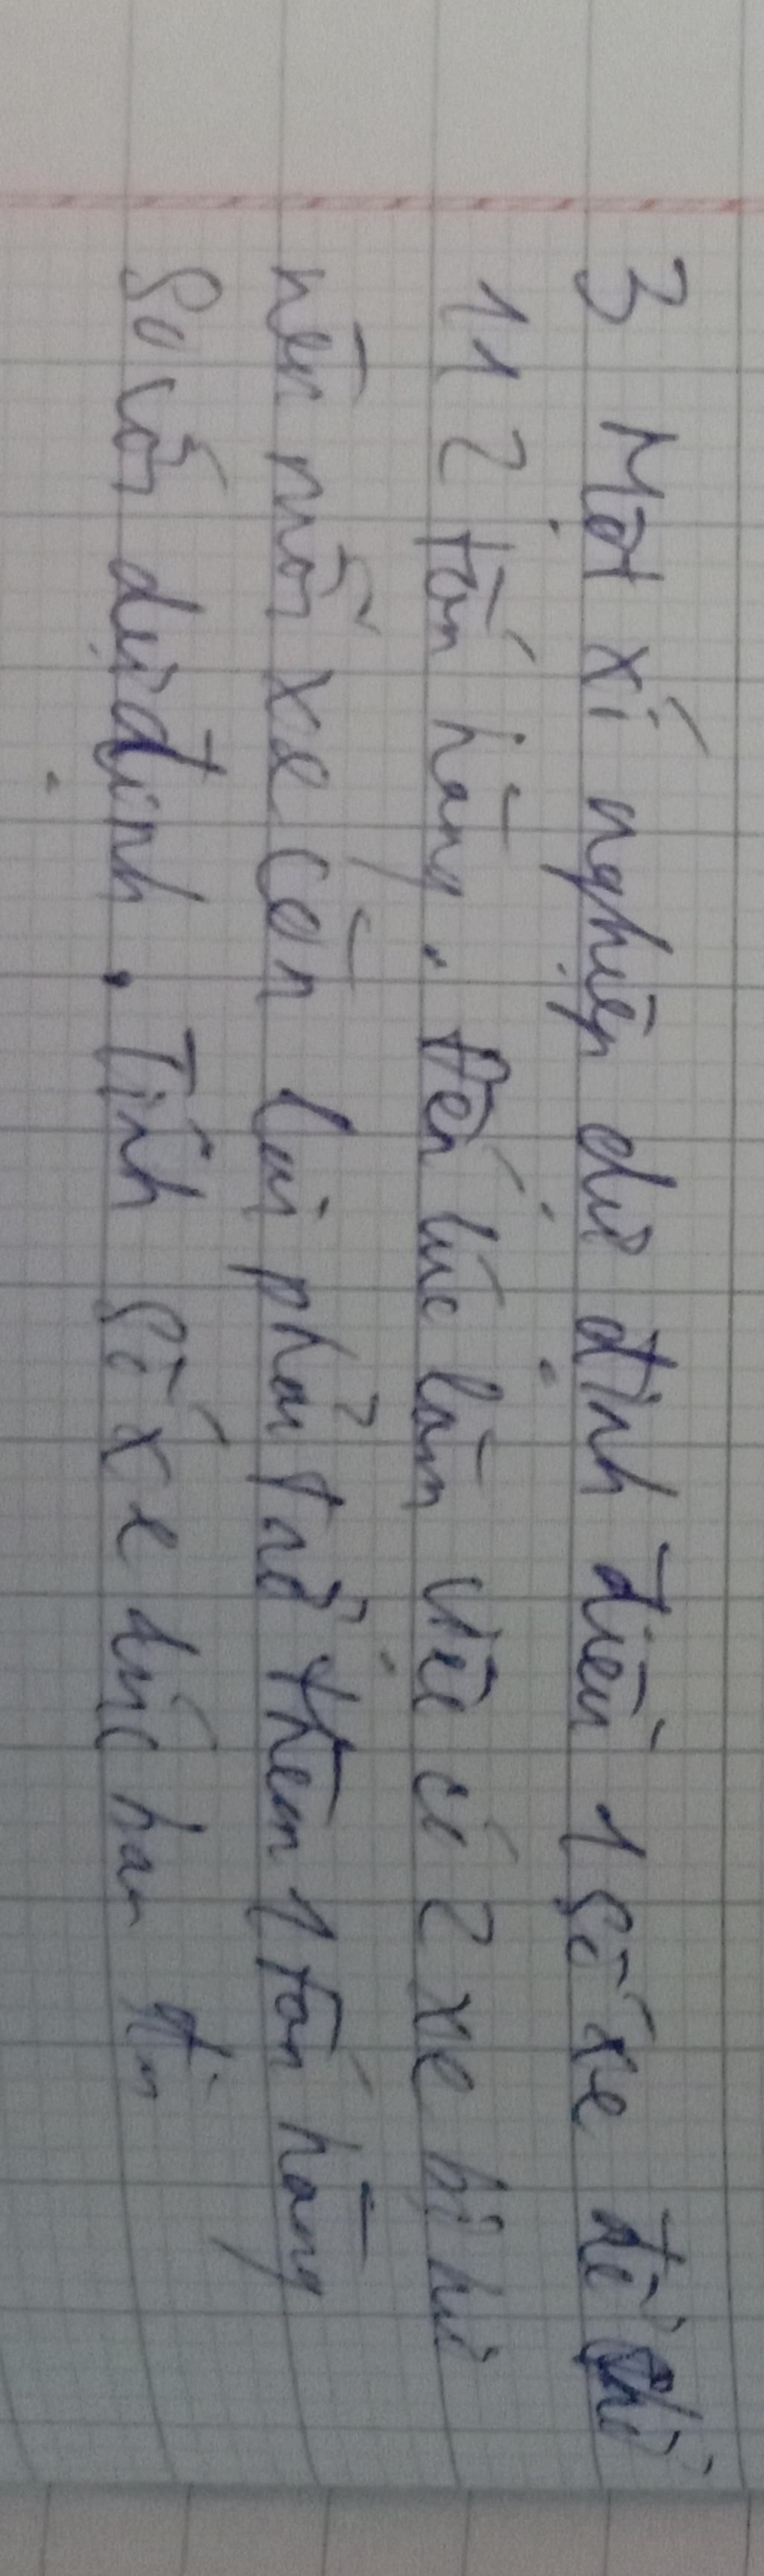 3 Một xí nghiệp dự định điều 1 số xe để chở
112 tấn hàng. Đến lúc làm việc có 2 xe bị hư
nên mỗi xe còn lại phải chở thêm 1 tấn hàng
so với dự định. Tính số xe lúc ban đầu